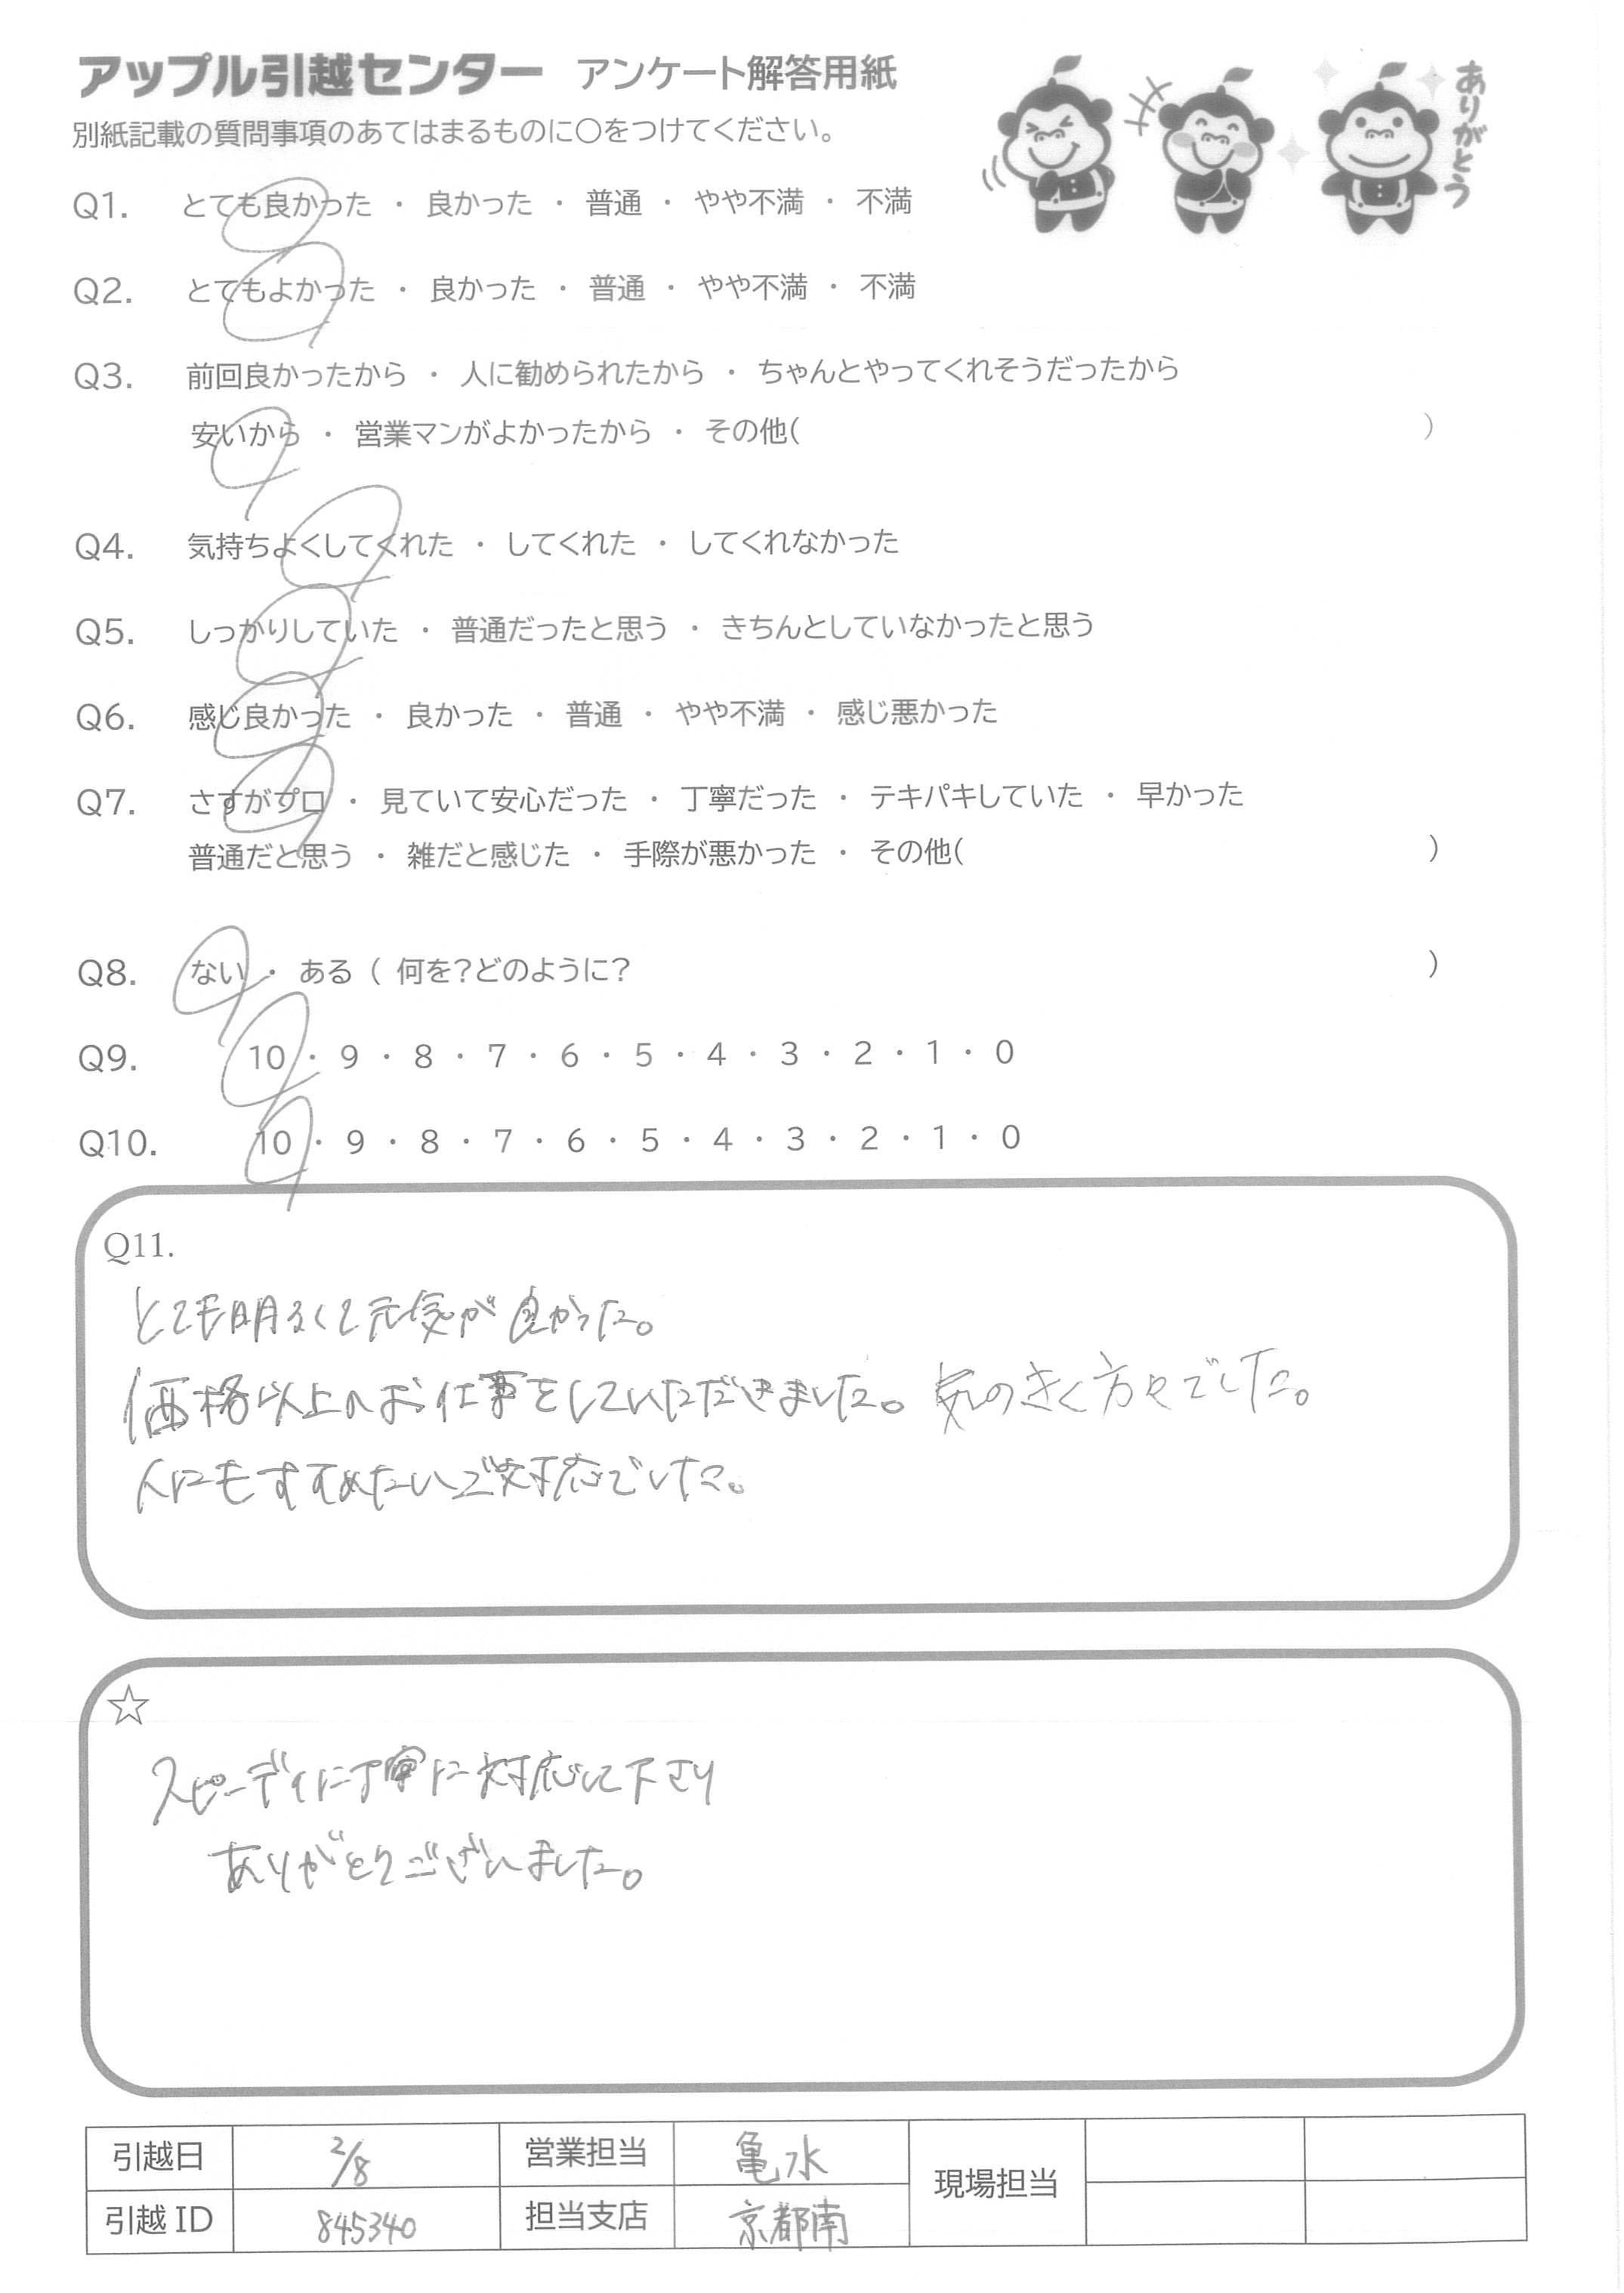 アップル引越センター アンケート解答用紙
ありがとう
別紙記載の質問事項のあてはまるものに○をつけてください。
Q1. とても良かった ・ 良かった ・ 普通 ・ やや不満 ・ 不満
Q2. とてもよかった ・ 良かった ・ 普通 ・ やや不満 ・ 不満
Q3. 前回良かったから ・ 人に勧められたから ・ ちゃんとやってくれそうだったから
安いから ・ 営業マンがよかったから ・ その他( )
Q4. 気持ちよくしてくれた ・ してくれた ・ してくれなかった
Q5. しっかりしていた ・ 普通だったと思う ・ きちんとしていなかったと思う
Q6. 感じ良かった ・ 良かった ・ 普通 ・ やや不満 ・ 感じ悪かった
Q7. さすがプロ ・ 見ていて安心だった ・ 丁寧だった ・ テキパキしていた ・ 早かった
普通だと思う ・ 雑だと感じた ・ 手際が悪かった ・ その他( )
Q8. ない ・ ある ( 何を?どのように? )
Q9. 10 ・ 9 ・ 8 ・ 7 ・ 6 ・ 5 ・ 4 ・ 3 ・ 2 ・ 1 ・ 0
Q10. 10 ・ 9 ・ 8 ・ 7 ・ 6 ・ 5 ・ 4 ・ 3 ・ 2 ・ 1 ・ 0
Q11.
とても明るくて元気が良かった。
価格以上のお仕事をしていただきました。気のきく方々でした。
人にもすすめたいご対応でした。
☆
スピーディに丁寧に対応して下さり
ありがとうございました。
引越日 2/8 営業担当 亀水 現場担当
引越ID 845340 担当支店 京都南